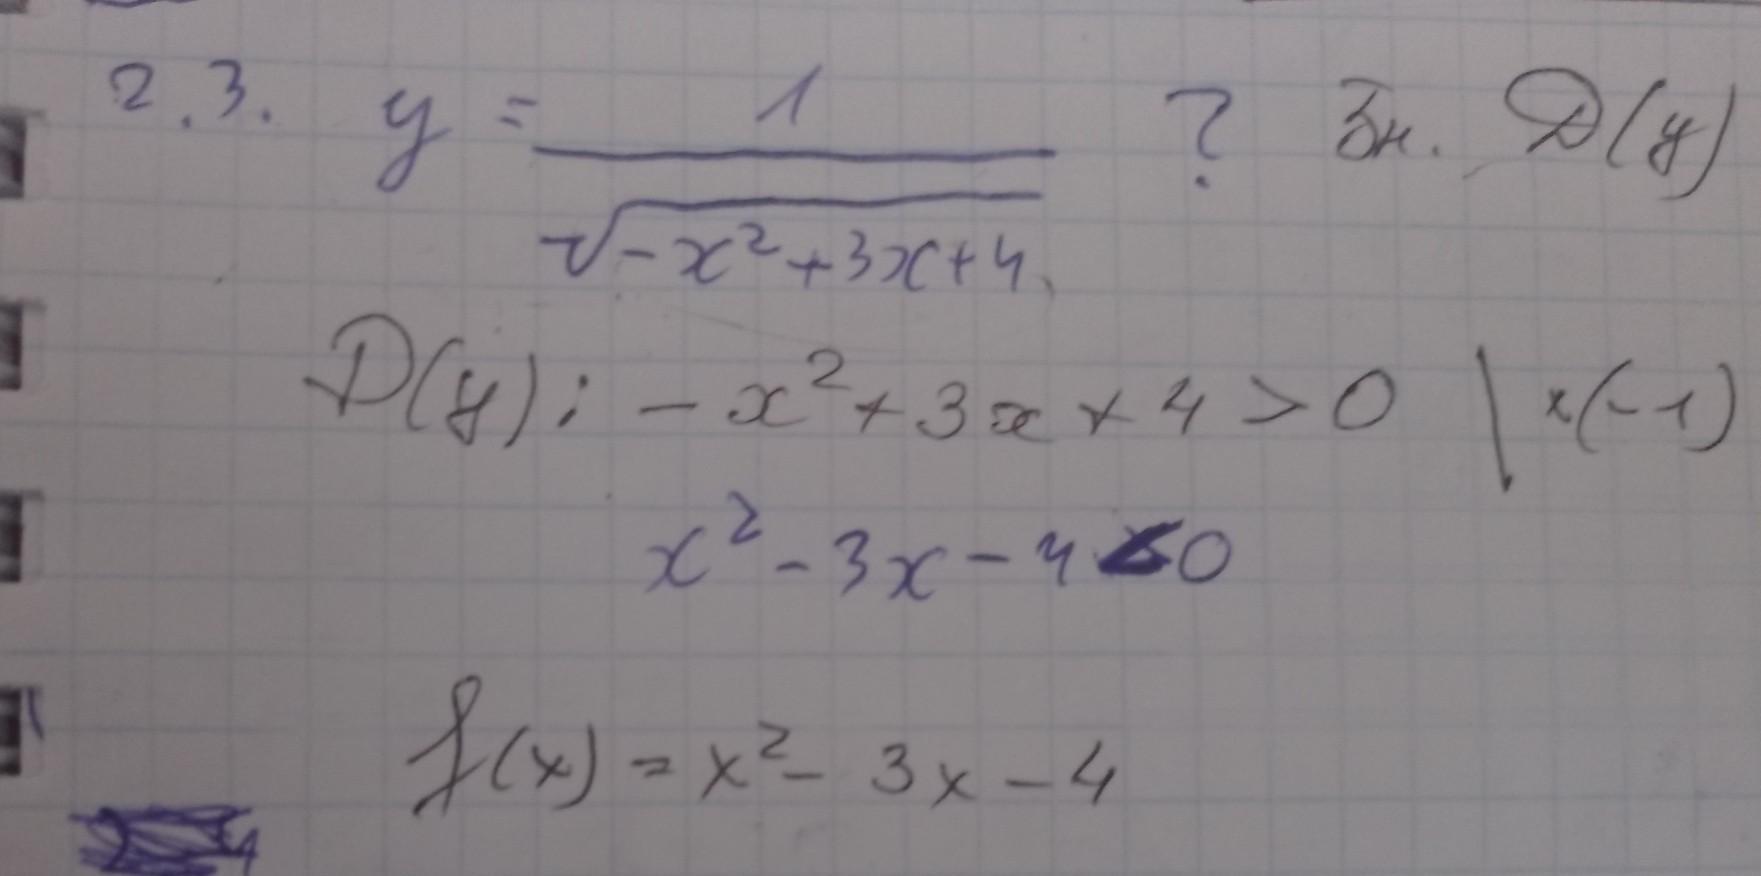 2.3. y = 1/√(-x²+3x+4) ? Зн. D(y)
D(y): -x²+3x+4>0 | ×(-1)
x²-3x-4<0
f(x)=x²-3x-4